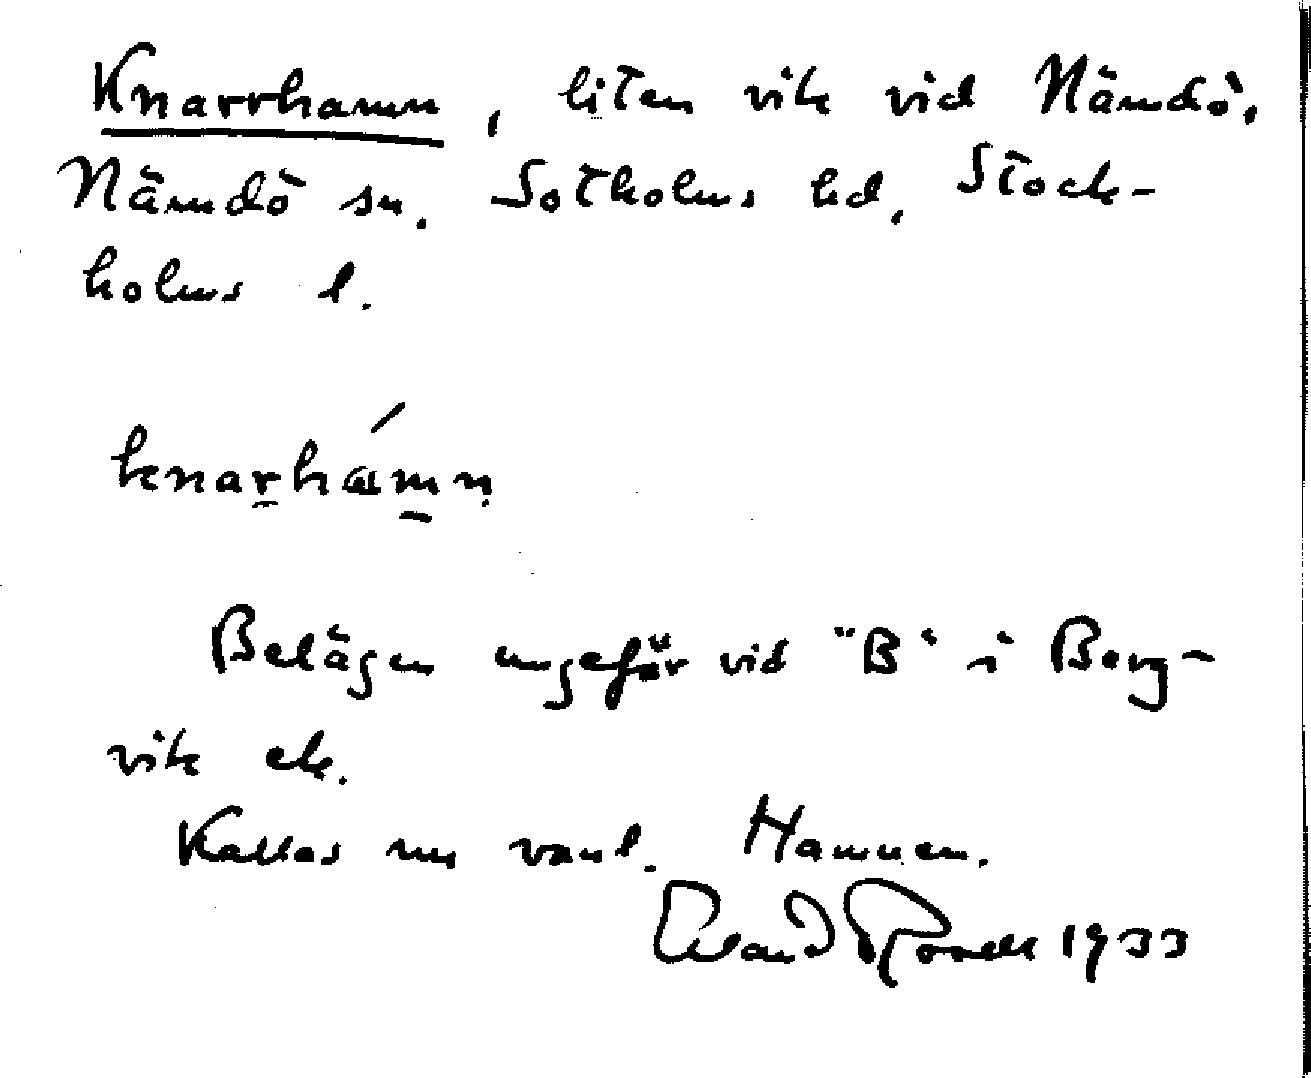 Knarrhamn, liten vik vid Nämdö,
Nämdö sn. Sotholms hd, Stock-
holms l.
knarhámn
Belägen ungefär vid "B" i Berg-
vik ek.
Kallas nu vanl. Hamnen.
Erland Rosell 1933